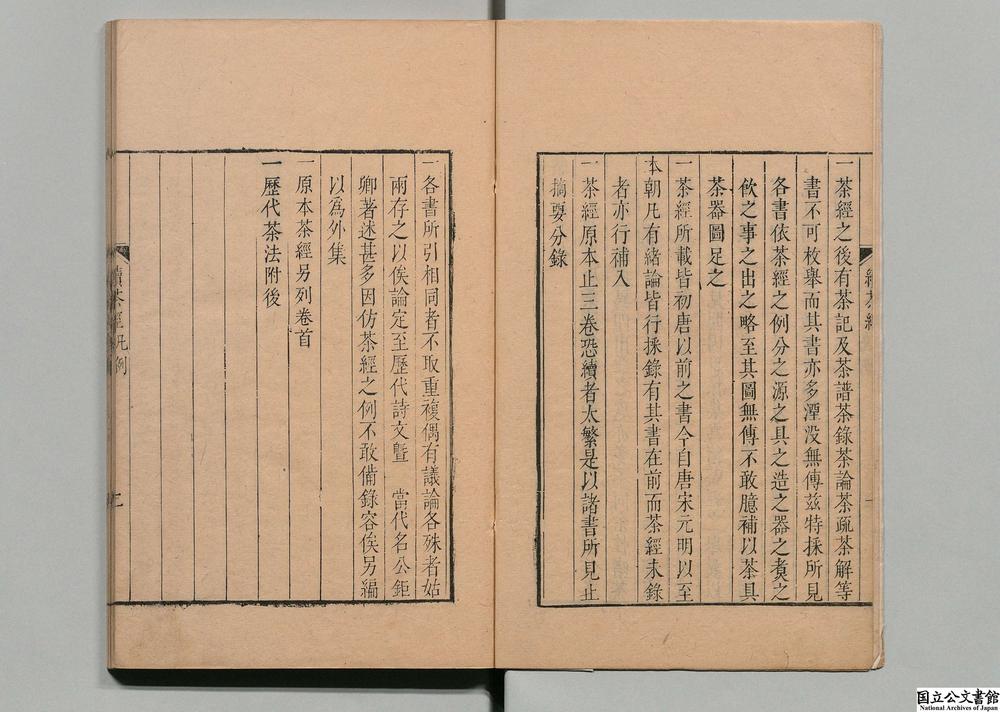 一茶經之後有茶記及茶譜茶錄茶論茶疏茶解等
書不可枚舉而其書亦多湮沒無傳茲特採所見
各書依茶經之例分之源之具之造之器之煑之
飲之事之出之略至其圖無傳不敢臆補以茶具
茶器圖足之
一茶經所載皆初唐以前之書今自唐宋元明以至
本朝凡有緒論皆行採錄有其書在前而茶經未錄
者亦行補入
一茶經原本止三卷恐續者太繁是以諸書所見止
摘要分錄
一各書所引相同者不取重複偶有議論各殊者姑
兩存之以俟論定至歷代詩文曁　當代名公鉅
卿著述甚多因仿茶經之例不敢備錄容俟另編
以爲外集
一原本茶經另列卷首
一歷代茶法附後
續茶經凡例
国立公文書館
National Archives of Japan